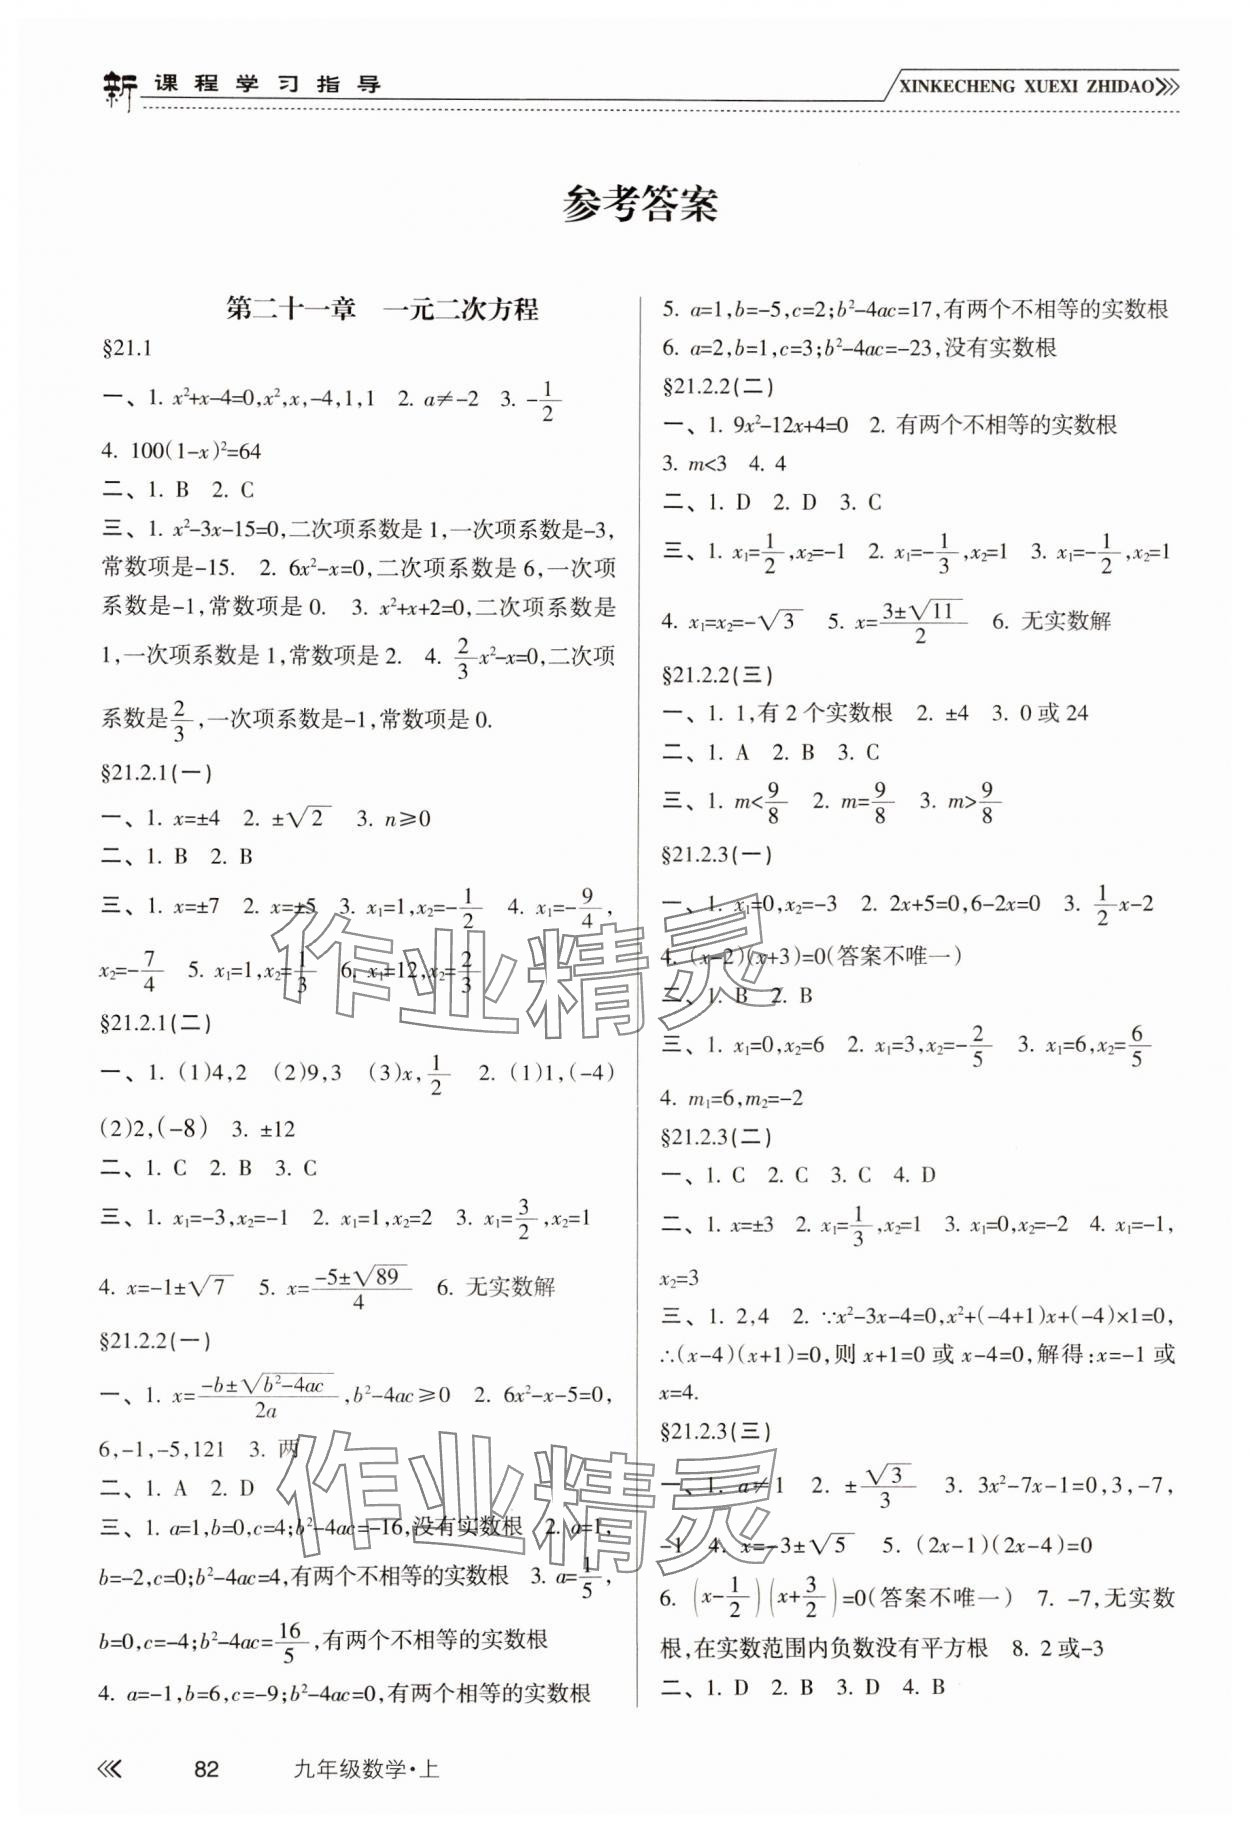 新课程学习指导
XINKECHENG XUEXI ZHIDAO
参考答案
第二十一章 一元二次方程
§21.1
一、1. x²+x-4=0,x²,x,-4,1,1 2. a≠-2 3. -1/2
4. 100(1-x)²=64
二、1. B 2. C
三、1. x²-3x-15=0,二次项系数是1,一次项系数是-3,
常数项是-15. 2. 6x²-x=0,二次项系数是6,一次项
系数是-1,常数项是0. 3. x²+x+2=0,二次项系数是
1,一次项系数是1,常数项是2. 4. 2/3x²-x=0,二次项
系数是2/3,一次项系数是-1,常数项是0.
§21.2.1(一)
一、1. x=±4 2. ±√2 3. n≥0
二、1. B 2. B
三、1. x=±7 2. x=±5 3. x₁=1,x₂=-1/2 4. x₁=-9/4,
x₂=-7/4 5. x₁=1,x₂=1/3 6. x₁=12,x₂=2/3
§21.2.1(二)
一、1. (1)4,2 (2)9,3 (3)x,1/2 2. (1)1,(-4)
(2)2,(-8) 3. ±12
二、1. C 2. B 3. C
三、1. x₁=-3,x₂=-1 2. x₁=1,x₂=2 3. x₁=3/2,x₂=1
4. x=-1±√7 5. x=(-5±√89)/4 6. 无实数解
§21.2.2(一)
一、1. x=(-b±√(b²-4ac))/2a,b²-4ac≥0 2. 6x²-x-5=0,
6,-1,-5,121 3. 两
二、1. A 2. D
三、1. a=1,b=0,c=4;b²-4ac=-16,没有实数根 2. a=1,
b=-2,c=0;b²-4ac=4,有两个不相等的实数根 3. a=1/5,
b=0,c=-4;b²-4ac=16/5,有两个不相等的实数根
4. a=-1,b=6,c=-9;b²-4ac=0,有两个相等的实数根
5. a=1,b=-5,c=2;b²-4ac=17,有两个不相等的实数根
6. a=2,b=1,c=3;b²-4ac=-23,没有实数根
§21.2.2(二)
一、1. 9x²-12x+4=0 2. 有两个不相等的实数根
3. m<3 4. 4
二、1. D 2. D 3. C
三、1. x₁=1/2,x₂=-1 2. x₁=-1/3,x₂=1 3. x₁=-1/2,x₂=1
4. x₁=x₂=-√3 5. x=(3±√11)/2 6. 无实数解
§21.2.2(三)
一、1. 1,有2个实数根 2. ±4 3. 0或24
二、1. A 2. B 3. C
三、1. m<9/8 2. m=9/8 3. m>9/8
§21.2.3(一)
一、1. x₁=0,x₂=-3 2. 2x+5=0,6-2x=0 3. 1/2x-2
4. (x-2)(x+3)=0(答案不唯一)
二、1. B 2. B
三、1. x₁=0,x₂=6 2. x₁=3,x₂=-2/5 3. x₁=6,x₂=6/5
4. m₁=6,m₂=-2
§21.2.3(二)
一、1. C 2. C 3. C 4. D
二、1. x=±3 2. x₁=1/3,x₂=1 3. x₁=0,x₂=-2 4. x₁=-1,
x₂=3
三、1. 2,4 2. ∵x²-3x-4=0,x²+(-4+1)x+(-4)×1=0,
∴(x-4)(x+1)=0,则x+1=0或x-4=0,解得:x=-1或
x=4.
§21.2.3(三)
一、1. a≠1 2. ±√3/3 3. 3x²-7x-1=0,3,-7,
-1 4. x=-3±√5 5. (2x-1)(2x-4)=0
6. (x-1/2)(x+3/2)=0(答案不唯一) 7. -7,无实数
根,在实数范围内负数没有平方根 8. 2或-3
二、1. D 2. B 3. D 4. B
82 九年级数学·上
作业精灵
作业精灵